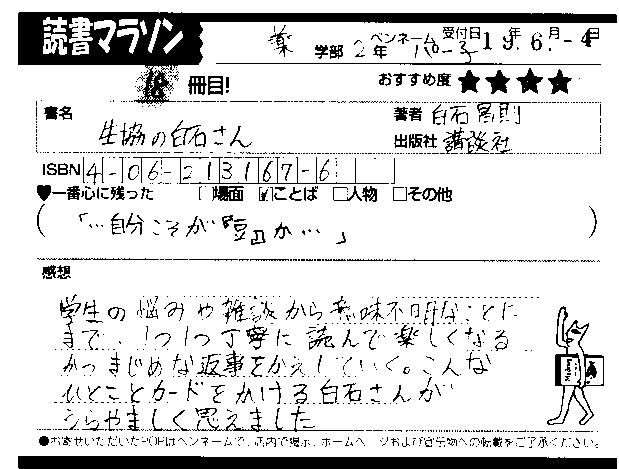 読書マラソン
薬 学部 2年 ペンネーム パセ子 受付日 19年 6月 -4日
18 冊目! おすすめ度 ★★★★
書名 生協の白石さん
著者 白石昌則
出版社 講談社
ISBN 4-06-213167-6
♥一番心に残った □場面 ☑ことば □人物 □その他
(「…自分こそが『豆』か…」)
感想
学生の悩みや雑談から意味不明なことに
まで、1つ1つ丁寧に読んで楽しくなる
かつまじめな返事をかえしていく。こんな
ひとことカードをかける白石さんが
うらやましく思えました
●お寄せいただいたPOPはペンネームで、店内で掲示、ホームページおよび宣伝物への転載をご了承ください。